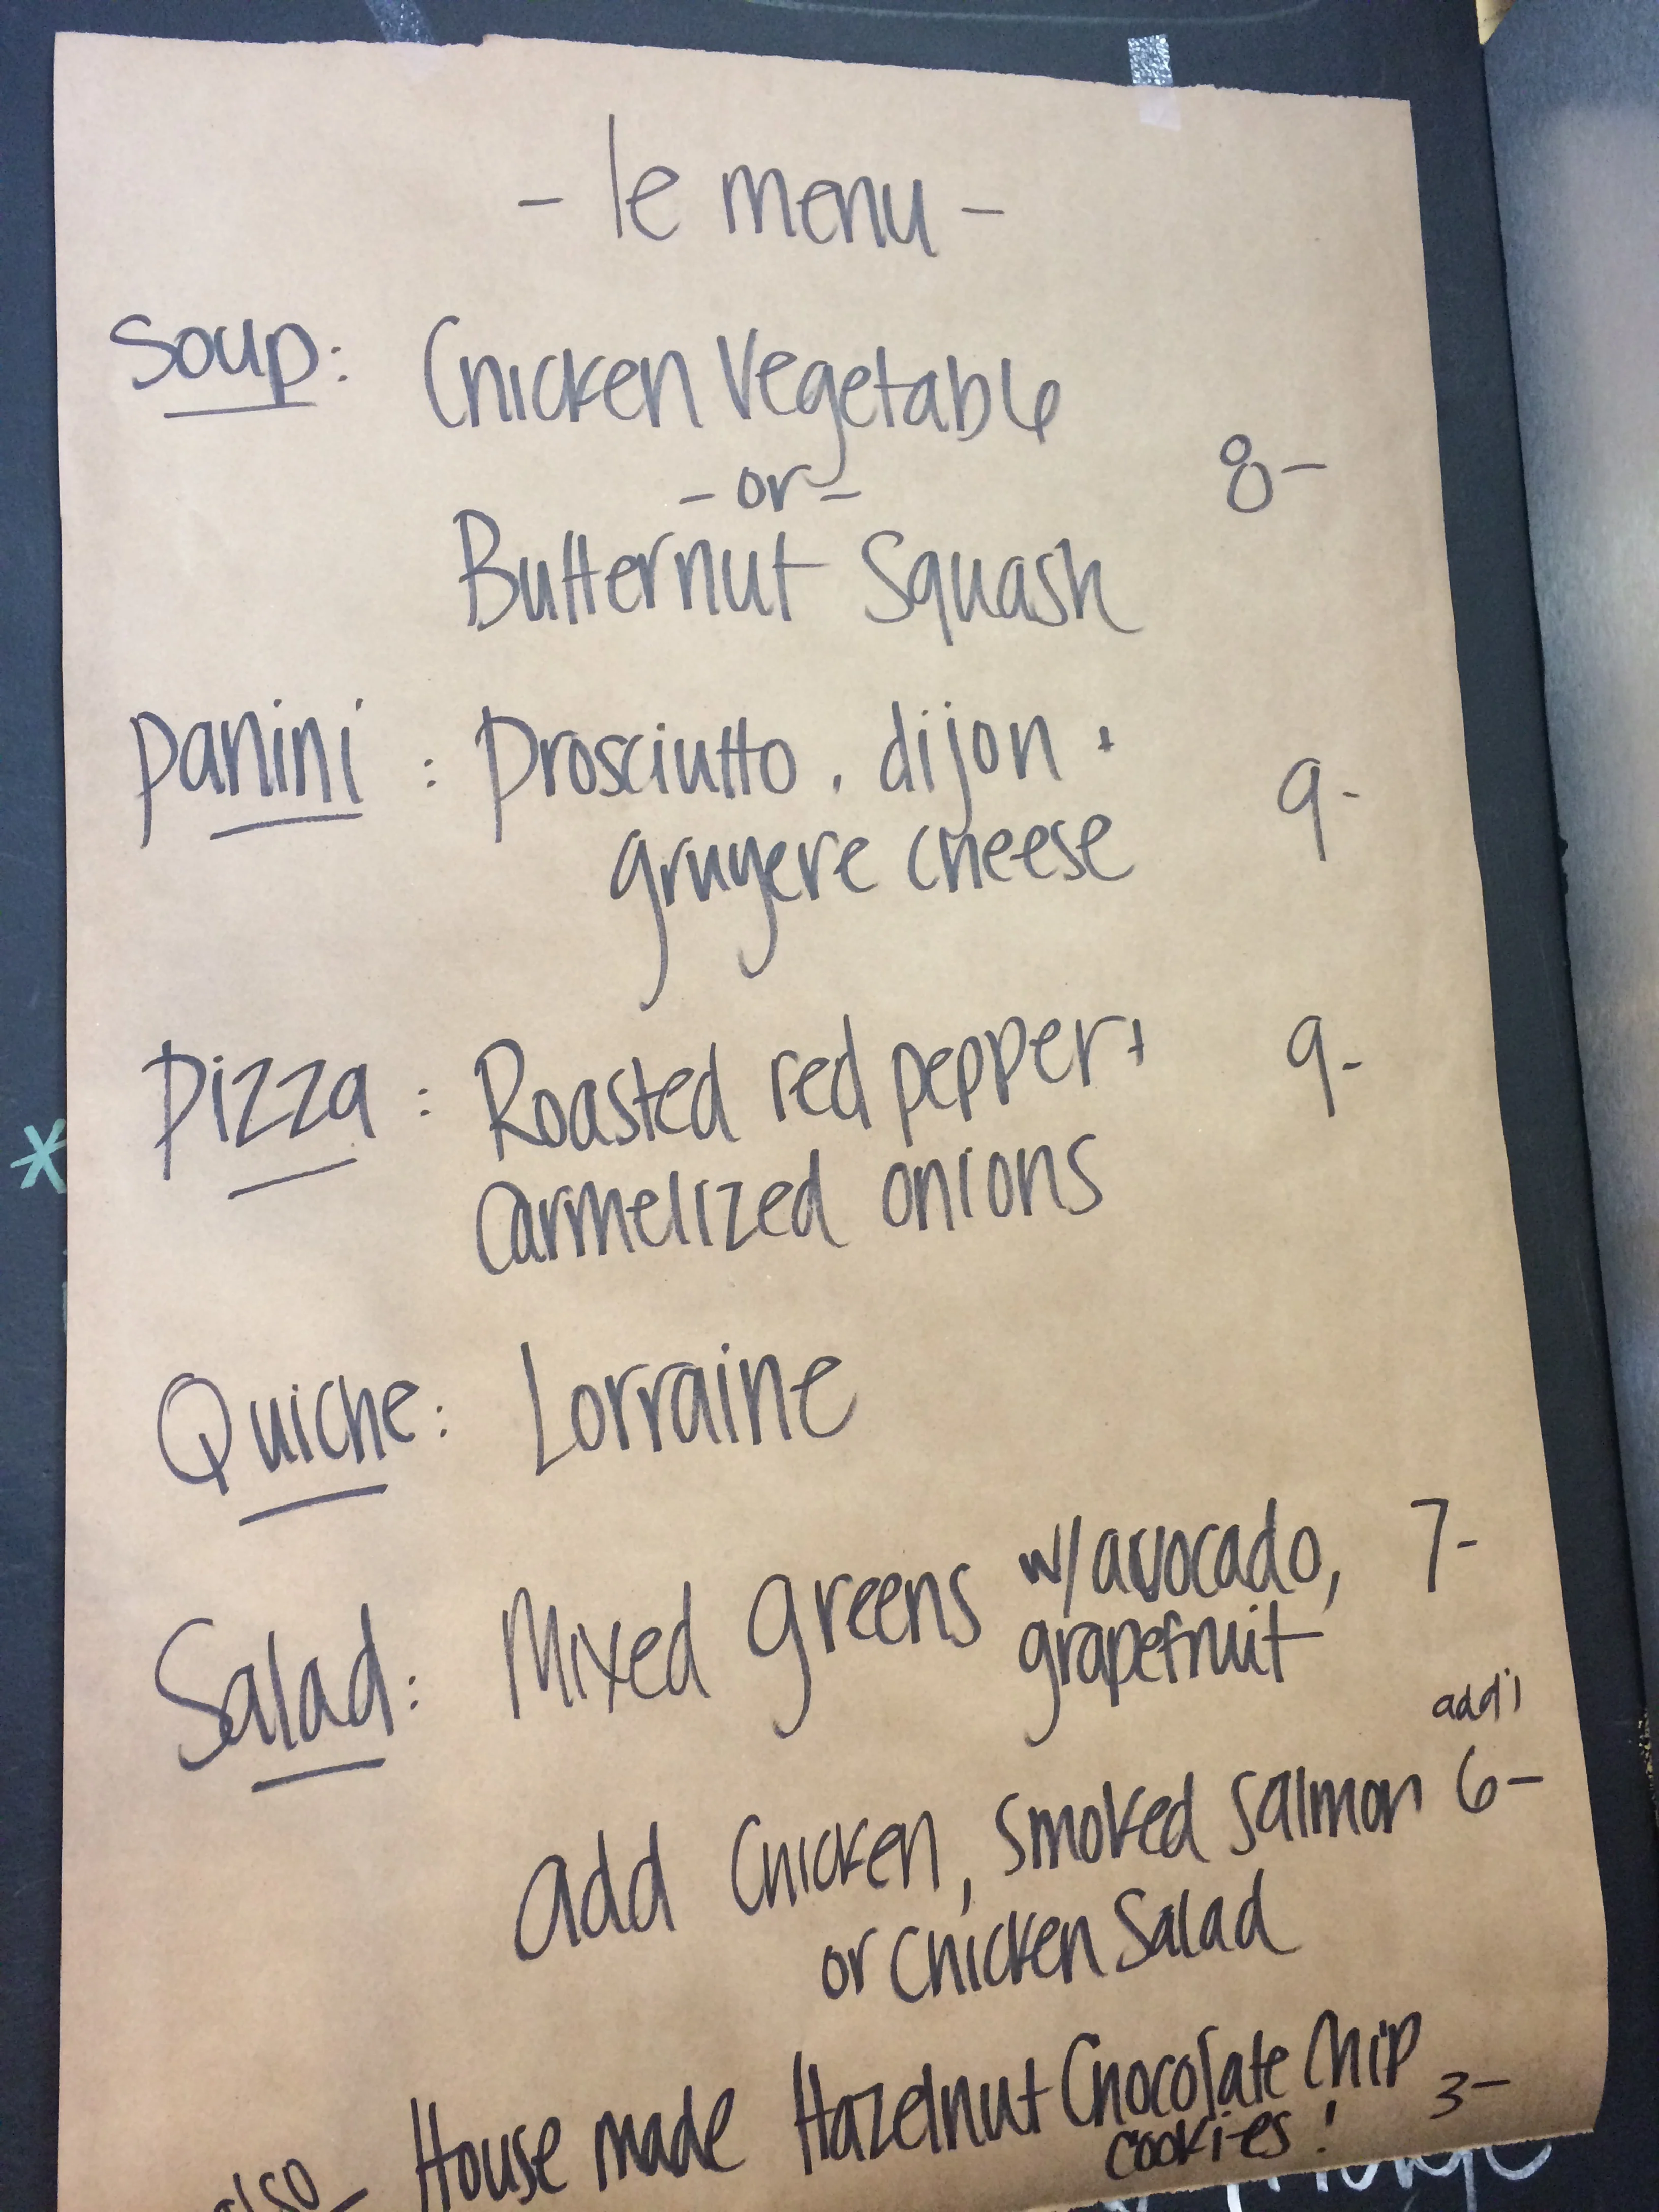 - le menu -
Soup: Chicken Vegetable
- or -
8-
Butternut Squash
Panini : Prosciutto, dijon +
9-
gruyere cheese
Pizza : Roasted red pepper +
9-
Carmelized onions
Quiche: Lorraine
Salad: Mixed greens w/ avocado, 7-
grapefruit
add'l
add Chicken, Smoked Salmon 6-
or Chicken Salad
also - House made Hazelnut Chocolate Chip 3-
cookies!